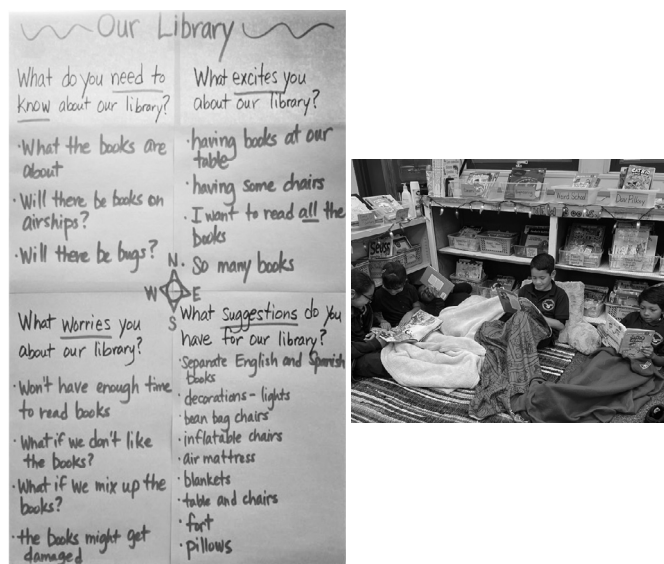 Our Library
What do you need to
know about our library?
· What the books are
about
· Will there be books on
airships?
· Will there be bugs?
What excites you
about our library?
· having books at our
table
· having some chairs
· I want to read all the
books
· So many books
N
W E
S
What worries you
about our library?
· Won't have enough time
to read books
· What if we don't like
the books?
· What if we mix up the
books?
· the books might get
damaged
What suggestions do you
have for our library?
· Separate English and Spanish
books
· decorations - lights
· bean bag chairs
· inflatable chairs
· air mattress
· blankets
· table and chairs
· fort
· pillows
Seuss
Dav Pilkey